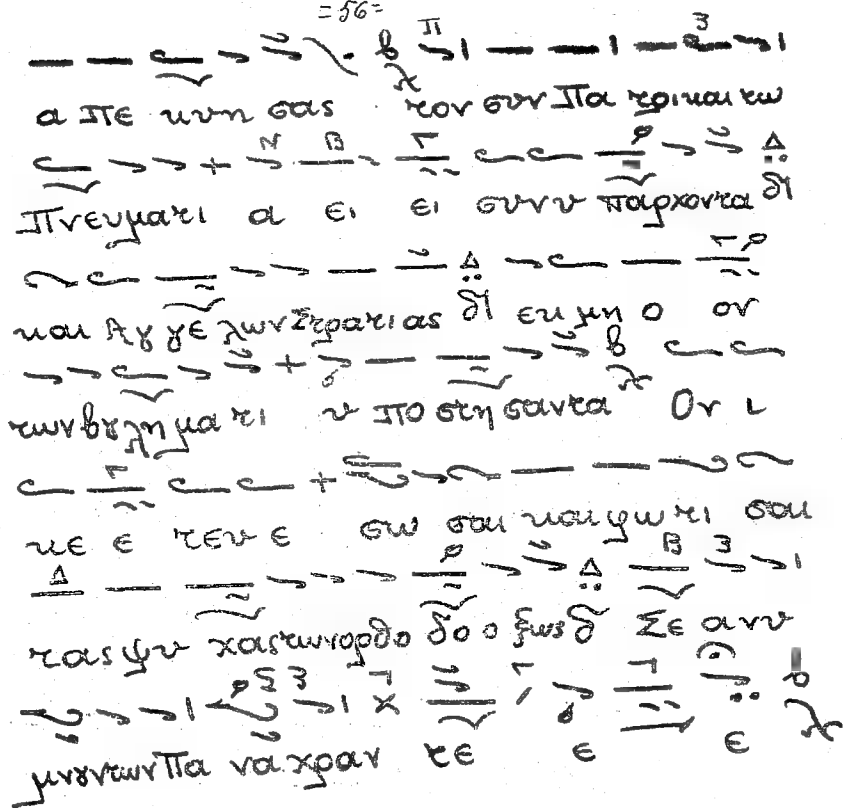 =56=
α πε κυη σας τον συν Πα τρι και τω
Πνευματι α ει ει συνυ πάρχοντα δι
και Αγ γε λων Στρατιας δι εκ μη ο ον
των βȣλη μα τι υ πο στη σαντα Ον ι
κε ε τευ ε σω σαι και φωτι σαι
τας ψυ χας των ορθο δο ο ξως δ Σε ανυ
μνȣντων Πα νάχραν τε ε ε